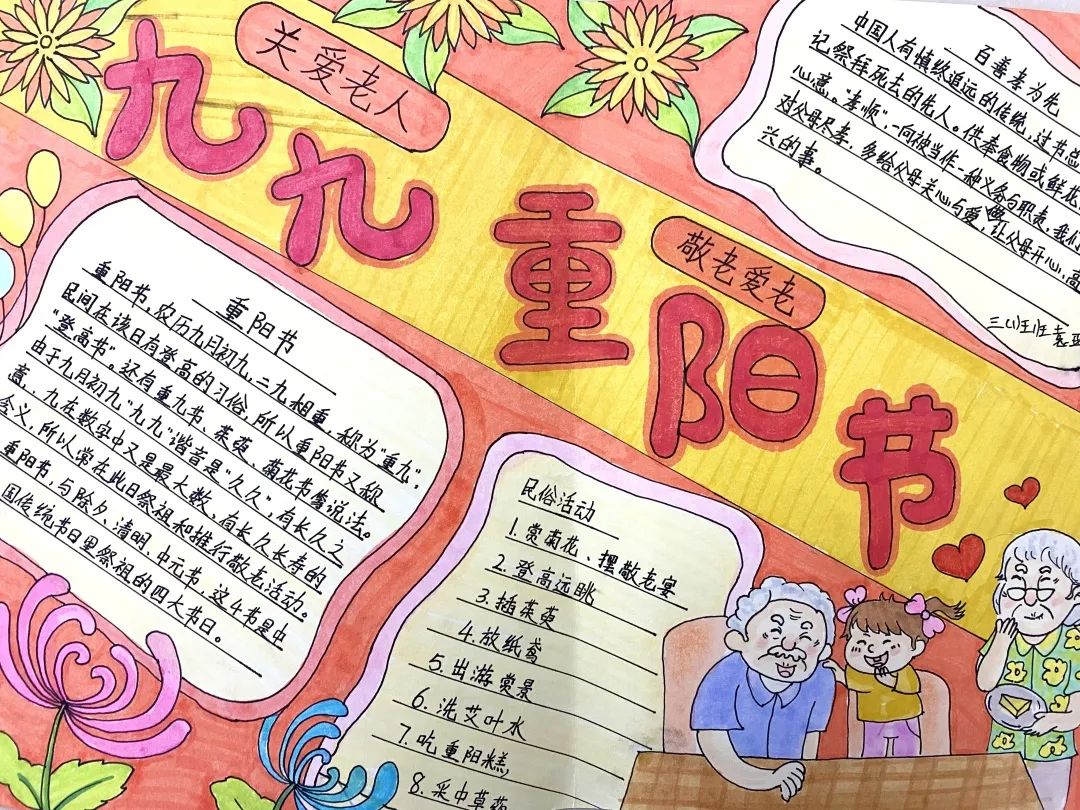 关爱老人
九九重阳节
敬老爱老
重阳节
重阳节，农历九月初九，二九相重，称为“重九”，
民间在该日有登高的习俗，所以重阳节又称
“登高节”。还有重九节、茱萸、菊花节等说法。
由于九月初九“九九”谐音是“久久”，有长久之
意，九在数字中又是最大数，有长久长寿的
含义，所以常在此日祭祖和推行敬老活动。
重阳节，与除夕、清明、中元节，这4节是中
国传统节日里祭祖的四大节日。
百善孝为先
中国人有慎终追远的传统，过节总
记祭拜死去的先人。供奉食物或鲜花
心意。“孝顺”，一向被当作一种义务与职责，我们
对父母尽孝，多给父母关心与爱，让父母开心，高
兴的事。
三(1)班
民俗活动
1.赏菊花、摆敬老宴
2.登高远眺
3.插茱萸
4.放纸鸢
5.出游赏景
6.洗艾叶水
7.吃重阳糕
8.采中草药